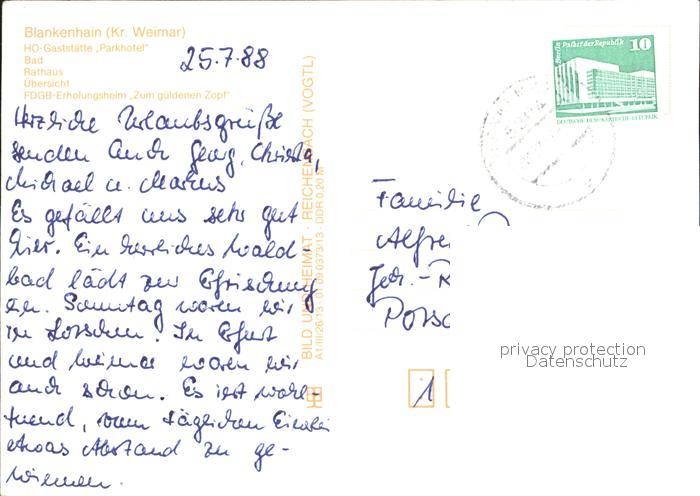 Blankenhain (Kr. Weimar)
HO-Gaststätte „Parkhotel"
Bad
Rathaus
Übersicht
FDGB-Erholungsheim „Zum güldenen Zopf"
25.7.88
Herzliche Urlaubsgrüße
senden Euch Georg, Christa,
Michael u. Markus
Es gefällt uns sehr gut
hier. Ein herrliches Wald-
bad lädt zur Erfrischung
ein. Sonntag waren wir
in . In Erfurt
und Weimar waren wir
auch schon. Es ist wohl-
tuend, vom täglichen Einerlei
etwas Abstand zu ge-
winnen.
BILD UND HEIMAT · REICHENBACH (VOGTL)
A1/III/26/13 01 09 0373/13 DDR 0,20 M
Berlin Palast der Republik
10
DEUTSCHE DEMOKRATISCHE REPUBLIK
Familie
Alfre
1
privacy protection
Datenschutz